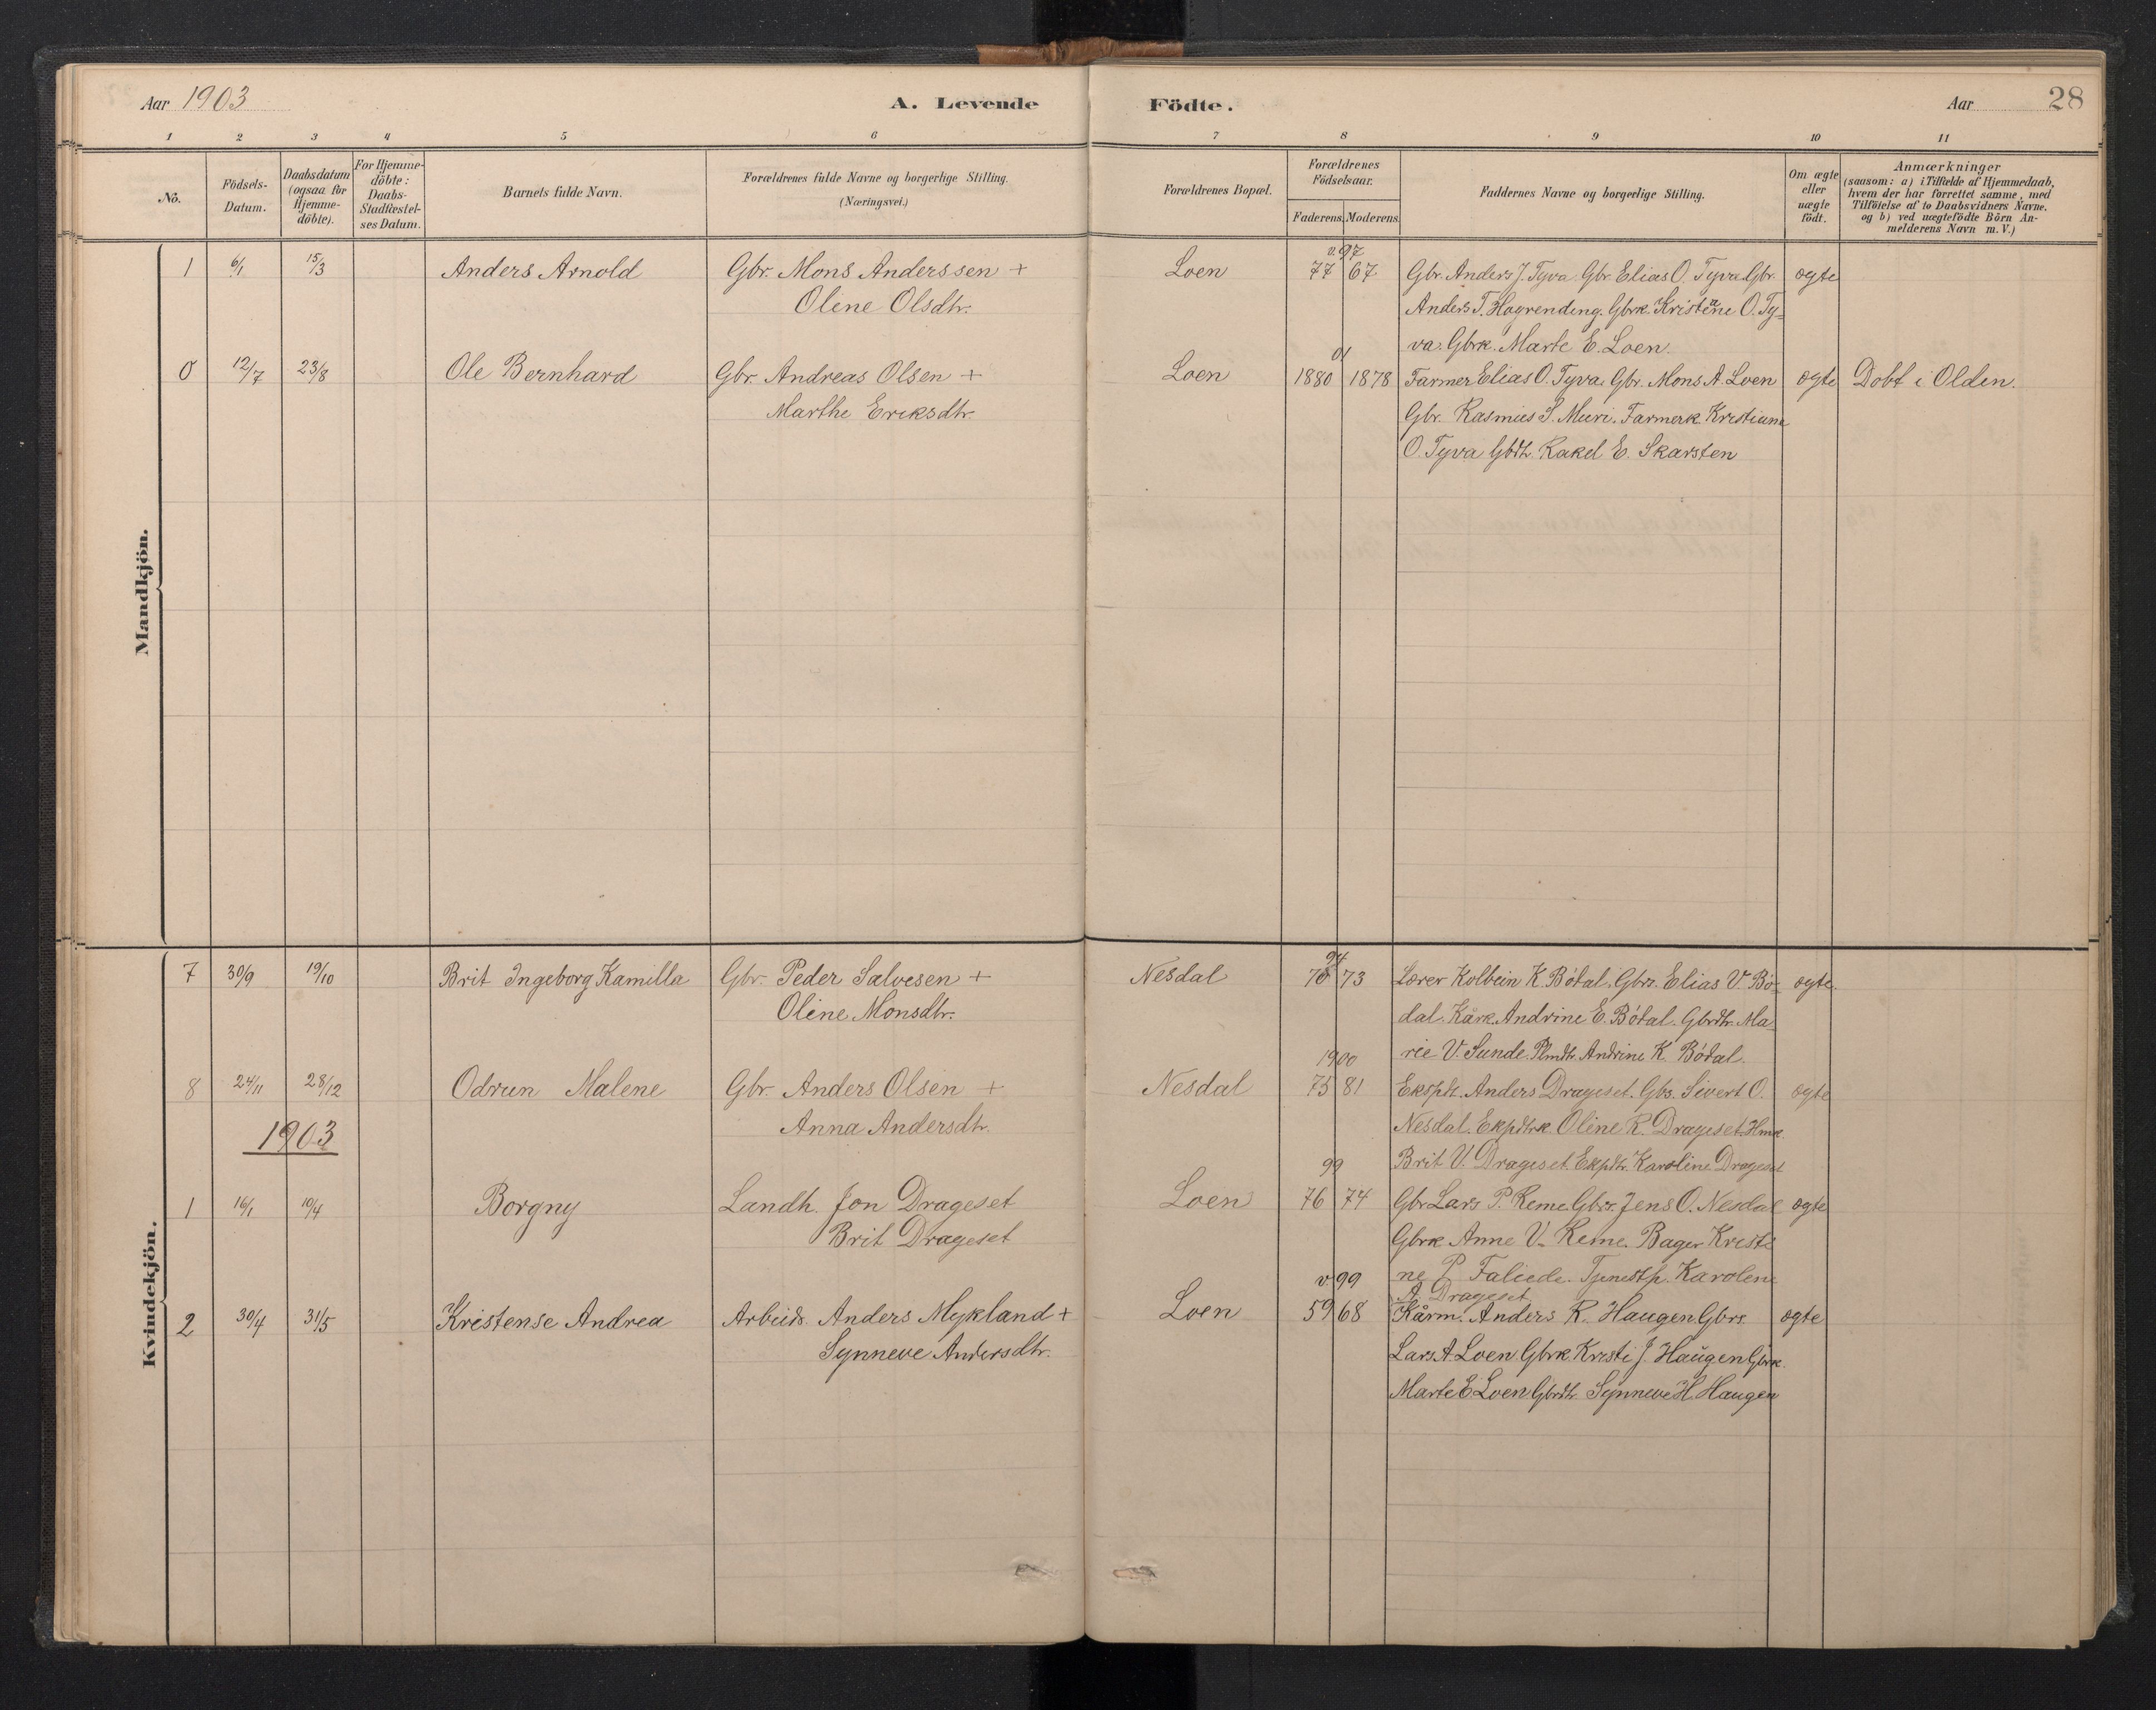 Aar 1903 A. Levende Födte. Aar 28
1 2 3 4 5 6 7 8 9 10 11
No.
Födsels-Datum.
Daabsdatum (ogsaa for Hjemme-döbte).
For Hjemme-döbte: Daabs-Stadfæstel-ses Datum.
Barnets fulde Navn.
Forældrenes fulde Navne og borgerlige Stilling.
(Næringsvei.)
Forældrenes Bopæl.
Forældrenes Födselsaar.
Faderens. Moderens.
Faddernes Navne og borgerlige Stilling.
Om ægte eller uægte födt.
Anmærkninger
(saasom: a) i Tilfælde af Hjemmedaab,
hvem der har forrettet samme, med
Tilföielse af to Daabsvidners Navne.
og b) ved uægtefödte Börn An-
melderens Navn m. V.)
Mandkjön.
v. 97
1 6/1 15/3 Anders Arnold Gbr. Mons Anderssen + Loen 77 67 Gbr. Anders J. Tyva. Gbr. Elias O. Tyva Gbr. ogte
Oline Olsdtr. Anders T. Hogrending. Gbrk. Kristine O. Ty-
va. Gbrk. Marte E. Loen.
01
0 12/7 23/8 Ole Bernhard Gbr. Andreas Olsen + Loen 1880 1878 Farmer Elias O. Tyva, Gbr. Mons A. Loen ogte Dobt i Olden.
Marthe Eriksdtr. Gbr. Rasmus S. Muri. Farmerk. Kristiana
O. Tyva Gbdtr. Rakel E. Skarsten
Kvindekjön.
94
7 30/9 19/10 Brit Ingeborg Kamilla Gbr. Peder Salvesen + Nesdal 70 73 Lærer Kolbein K. Bödal. Gbrs. Elias V. Bö- ogte.
Oline Monsdtr. dal. Kårk. Andrine E. Bödal. Gbrdtr. Ma-
rie V. Sunde. Plmdtr. Andrine K. Bödal.
1900
8 24/11 28/12 Odrun Malene Gbr. Anders Olsen + Nesdal 75 81 Ekspdt. Anders Drageset. Gbs. Sivert O. ogte
1903 Anna Andersdtr. Nesdal. Ekpdtrk. Oline R. Drageset. Hmk.
Brit V. Drageset. Ekpdtr. Karoline Drageset
99
1 16/1 10/4 Borgny Landh. Jon Drageset Loen 76 74 Gbr Lars P. Reme Gbrs. Jens O. Nesdal ogte
Brit Drageset Gbrk Anne V. Reme. Bager Kristi
ne P. Faliede. Tjenestp. Karolene
A. Drageset
v 99
2 30/4 31/5 Kristense Andrea Arbeids. Anders Mykland + Loen 59 68 Kårm. Anders R. Haugen. Gbrs. ogte
Synneve Andersdtr. Lars A. Loen. Gbrk. Kristi J. Haugen Gbrk.
Marte E Loen Gbrdtr. Synneve H. Haugen